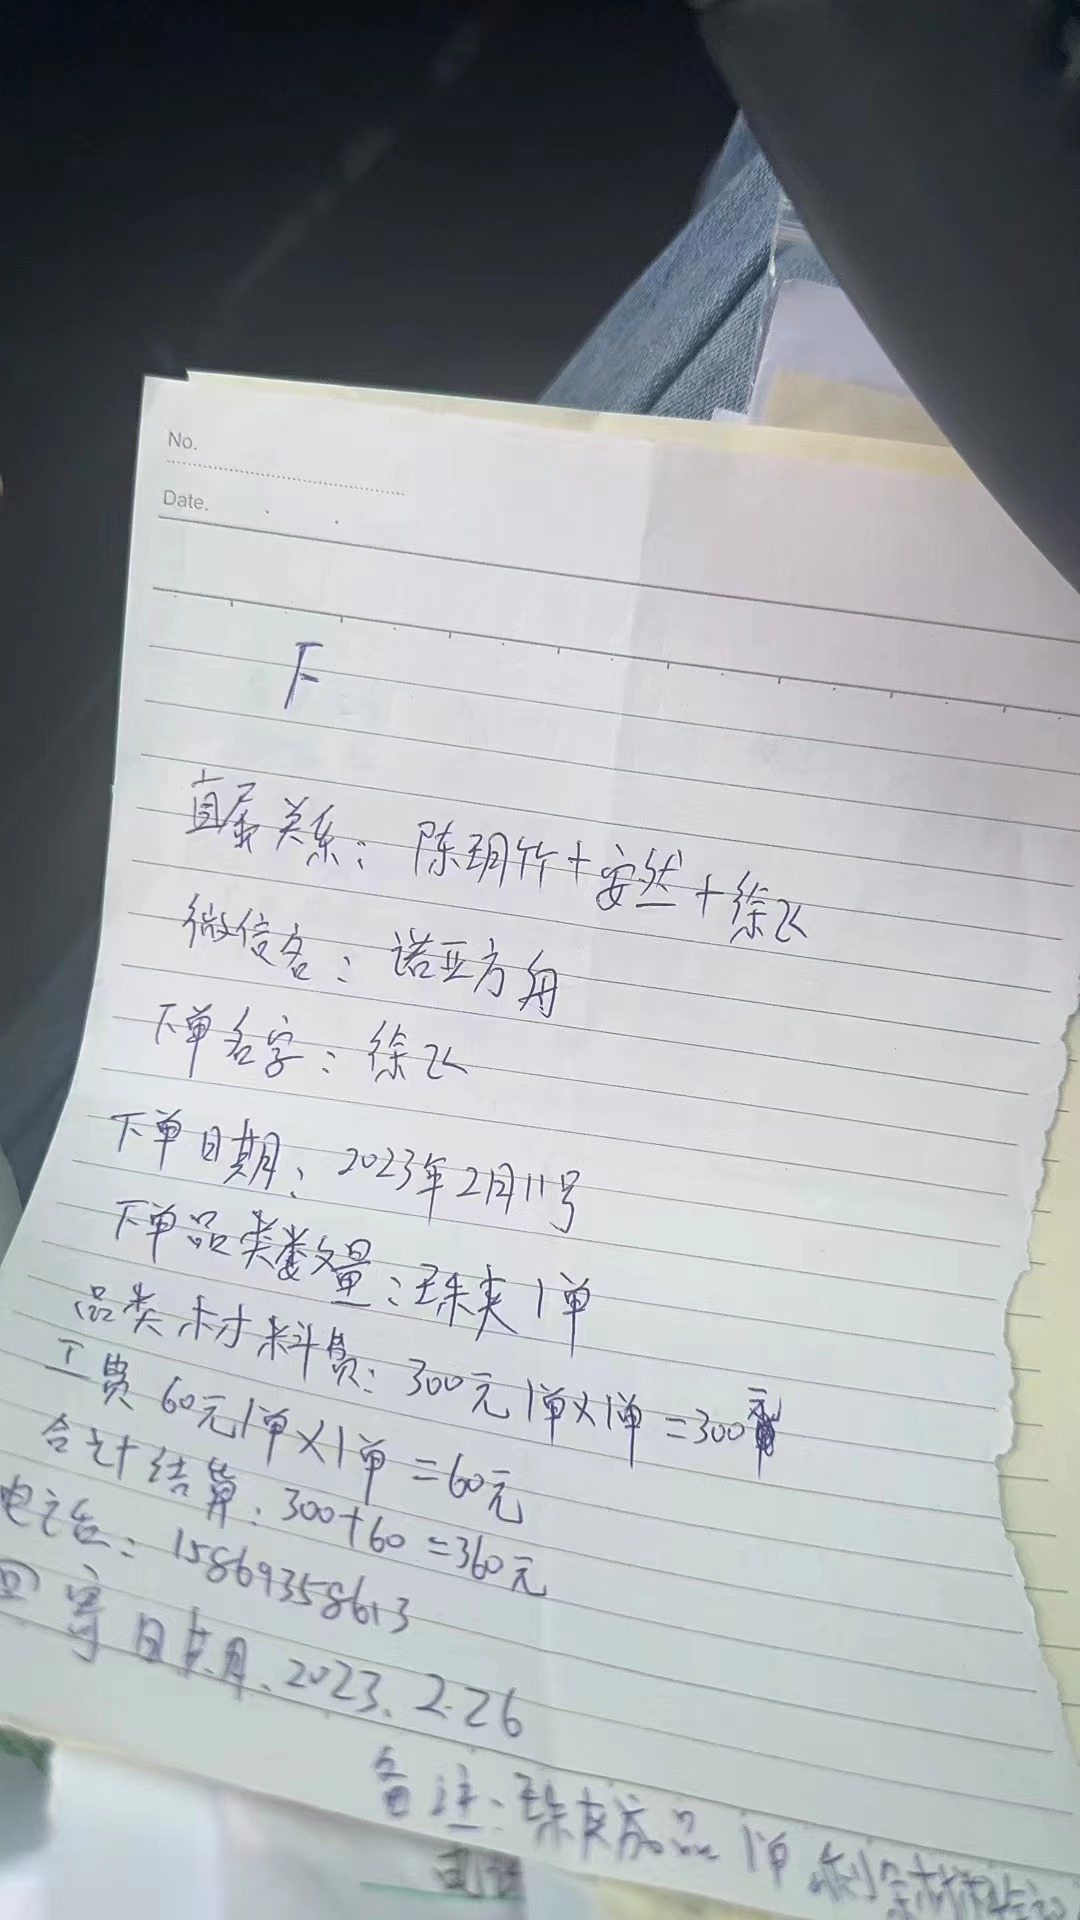 No.
Date.
下
直属关系：陈玥竹+安然+徐飞
微信名：诺亚方舟
下单名字：徐飞
下单日期：2023年2月11号
下单品类数量：珠夹1单
品类材料费：300元1单X1单=300元
工费60元1单X1单=60元
合计结算：300+60=360元
电话：15869358613
回寄日期、2023、2.26
备注：珠夹成品1单剩余材料